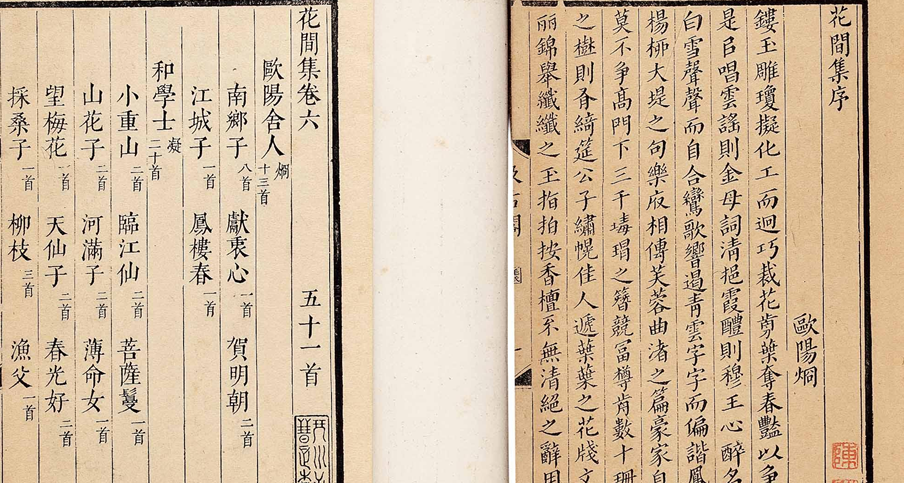 花間集序
歐陽烱
鏤玉雕瓊擬化工而迥巧裁花剪葉奪春豔以爭
是㠯唱雲謠則金母詞清挹霞醴則穆王心醉名
白雪聲聲而自合鸞歌響遏青雲字字而偏諧鳳
楊柳大堤之句樂府相傳芙蓉曲渚之篇豪家自
莫不爭高門下三千瑇瑁之簪競富樽歬數十珊
之樹則有綺筵公子繡幌佳人遞葉葉之花牋文
麗錦舉纖纖之玉指拍按香檀不無清絕之辭用
花間集卷六 五十一首
歐陽舍人烱十三首
南鄉子八首 獻衷心一首 賀明朝二首
江城子一首 鳳樓春一首
和學士凝二十首
小重山二首 臨江仙二首 菩薩鬘一首
山花子二首 河滿子二首 薄命女一首
望梅花一首 天仙子二首 春光好二首
採桑子一首 柳枝三首 漁父一首